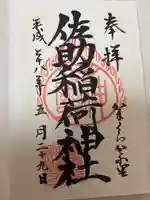 奉拝
佐助稲荷神社
平成二十八年五月二十九日